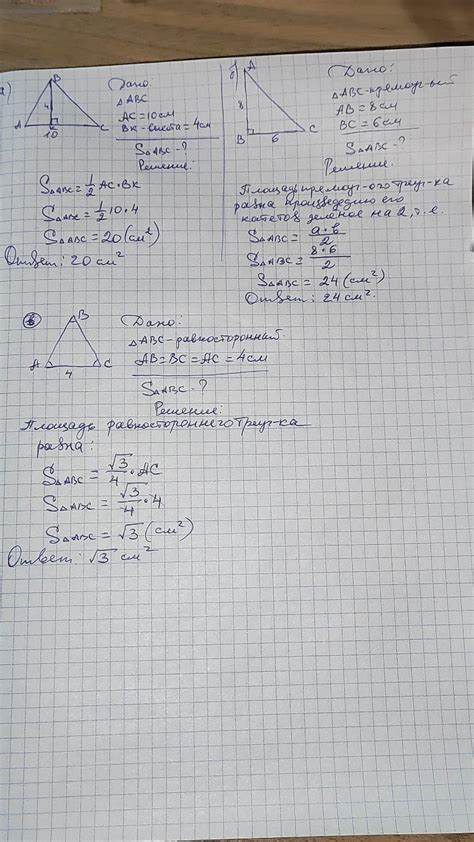 а)
B
4
A K C
10
Дано:
△ABC
AC=10см
BK-высота=4см
S△ABC-?
Решение:
S△ABC=1/2 AC·BK
S△ABC=1/2 10·4
S△ABC=20(см²)
Ответ: 20 см²
б)
A
8
B 6 C
Дано:
△ABC-прямоуг-ый
AB=8см
BC=6см
S△ABC-?
Решение:
Площадь прямоуг-ого треуг-ка
равна произведению его
катетов делёное на 2, т.е.
S△ABC= a·b/2
S△ABC= 8·6/2
S△ABC=24(см²)
Ответ: 24см².
в)
B
A C
4
Дано:
△ABC-равносторонний
AB=BC=AC=4см
S△ABC-?
Решение:
Площадь равностороннего треуг-ка
равна:
S△ABC= √3/4·AC
S△ABC= √3/4·4
S△ABC=√3(см²)
Ответ: √3 см²